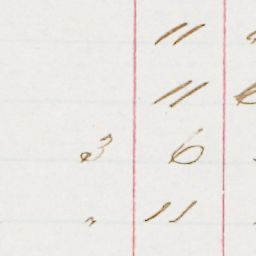 11
11
3 6
" 11